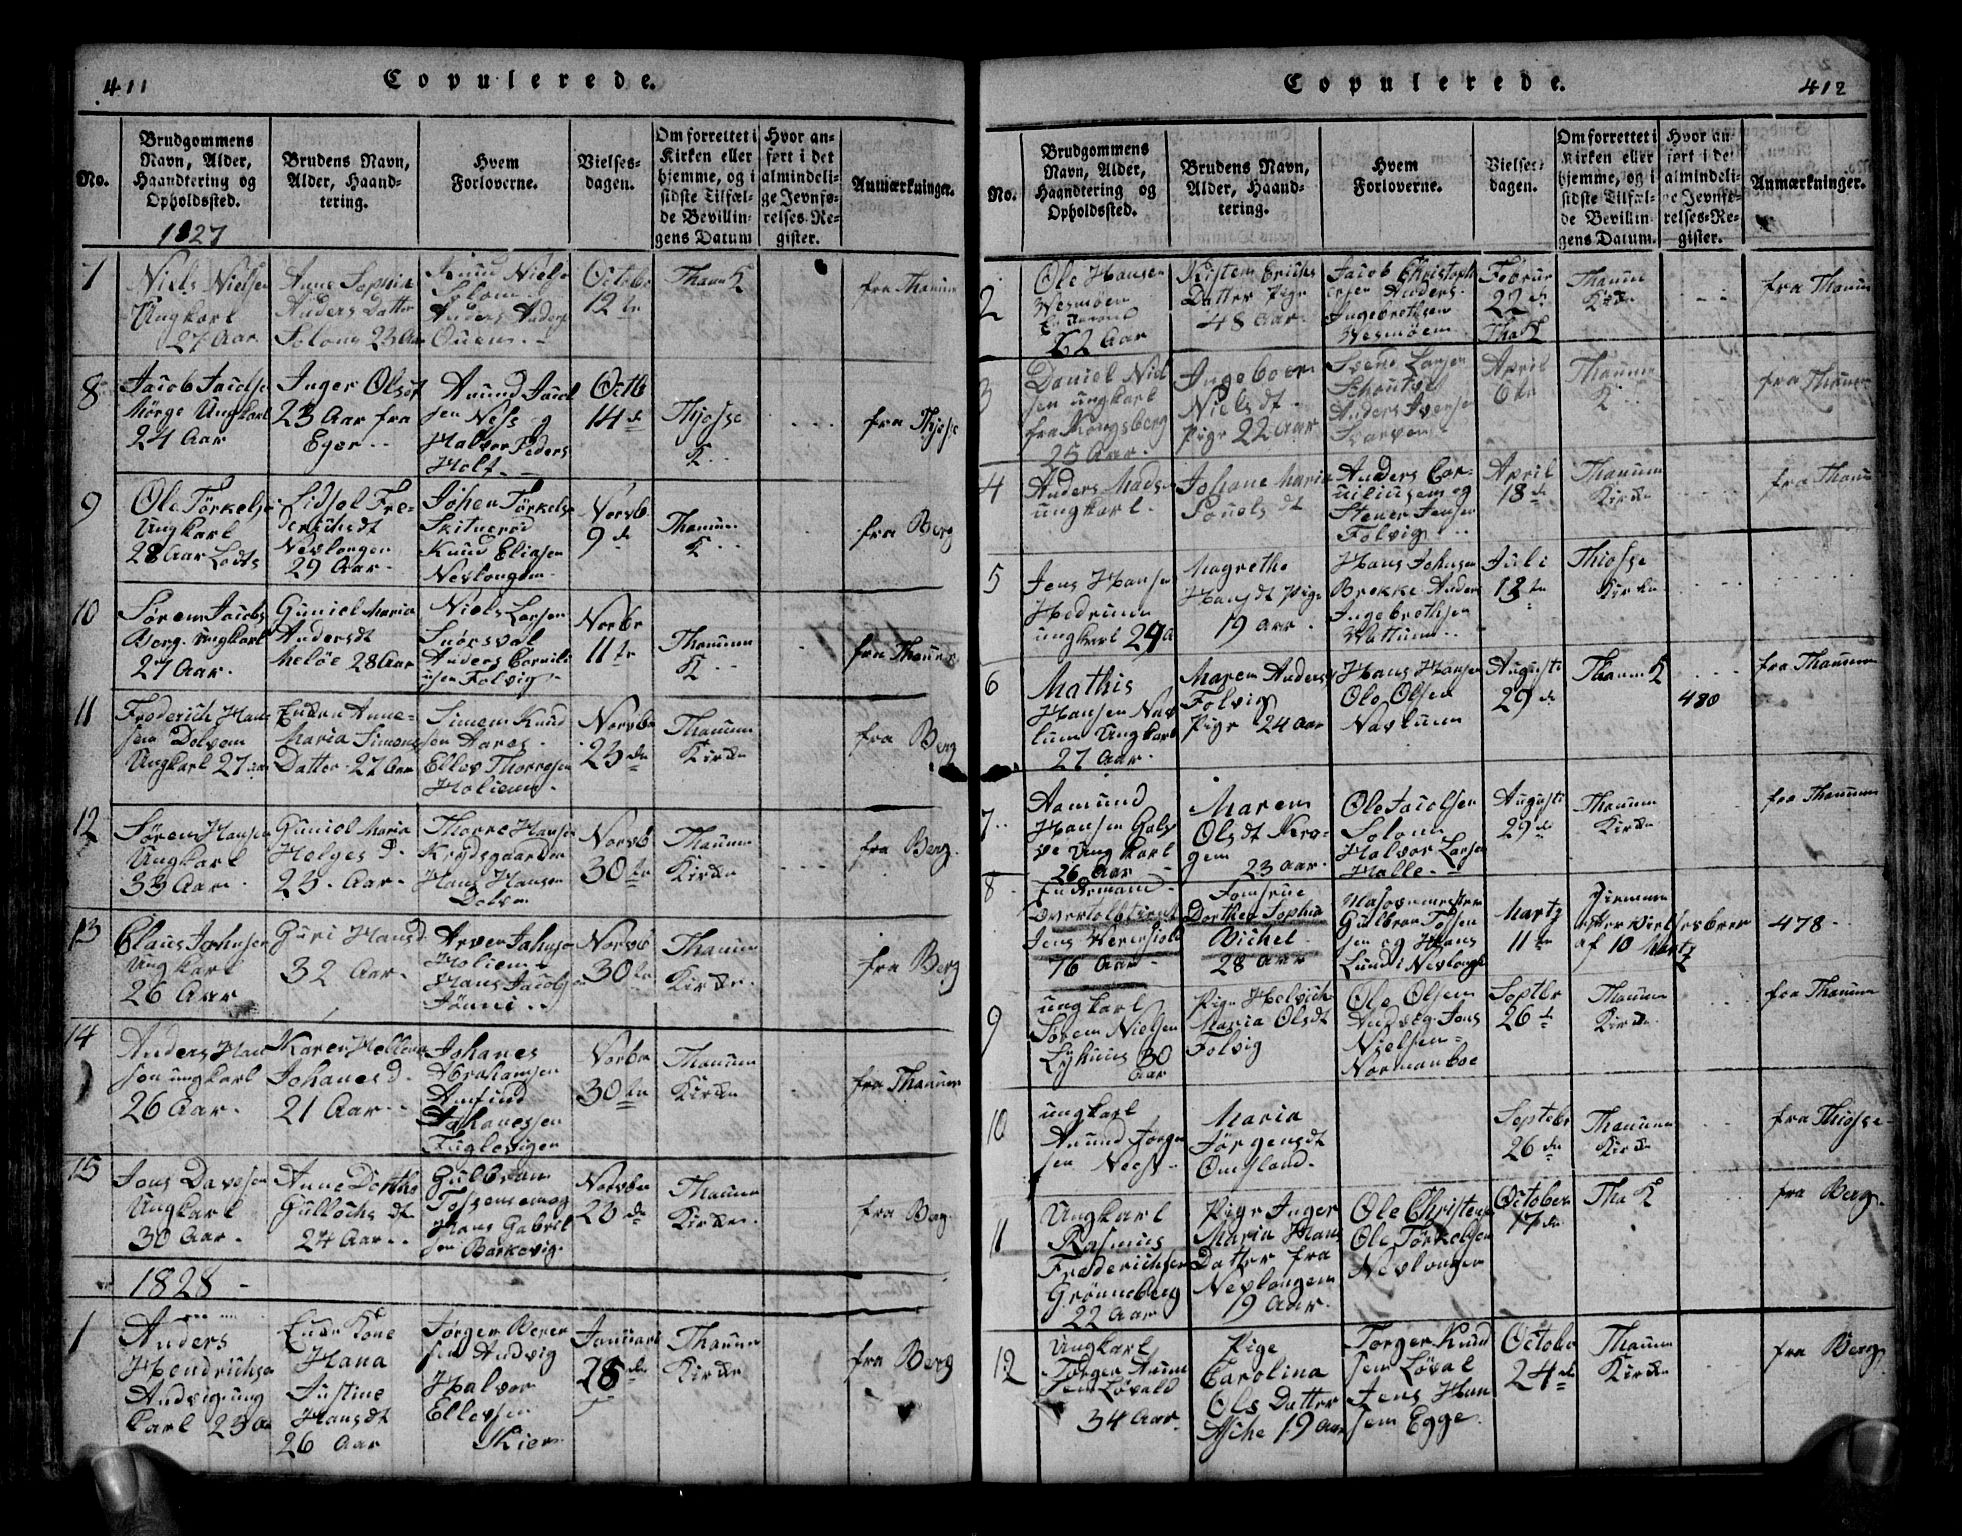 411
Copulerede.
No.
Brudgommens
Navn, Alder,
Haandtering og
Opholdssted.
Brudens Navn,
Alder, Haand-
tering.
Hvem
Forloverne.
Vielses-
dagen.
Om forrettet i
Kirken eller
hjemme, og i
sidste Tilfæl-
de Bevillin-
gens Datum
Hvor an-
ført i det
almindeli-
ge Jevnfø-
relses-Re-
gister.
Anmærkninger.
1827
7
Niels Nielsen
Ungkarl
27 Aar
Anne Sophie
Anders Datter
Solom 23 Aar
Knud Niels
Solom
Anders Anders
October
12te
Thanum K
fra Thanum
8
Jacob Jacobse
Mörge Ungkarl
24 Aar
Inger Olsdt
23 Aar fra
Eger
Anund Jacob
sen Næss og
Halvor Peders
Holt
Octb
14de
Thjosse
K
fra Thjosse
9
Ole Törkelse
Ungkarl
28 Aar Lodts
Sidsel Fre-
derichsdt
Nevlongen
29 Aar
Johen Törkels
Skitnerød
Knud Eliasen
Nevlongen
Novb
9de
Thanum
K
fra Berg
10
Sören Jacobs
Berg. ungkarl
27 Aar.
Guniel Maria
Andersdt
Meløe 28 Aar
Niels Larsen
Anders Corneli
usen Folvig
Novbr
11te
Thanum
K
fra Thanum
11
Frederich Han
sen Dolven
Ungkarl 27 aar
Enken Anne
Maria Simons
Datter 27 Aar
Simen Knud
sen Aares
Ellev Thoresen
Holien
Novbr
23de
Thanum
Kirke
fra Berg
12
Sören Hansen
Ungkarl
33 Aar
Guniel Maria
Helges D.
23 Aar
Thorre Hansen
Krydsgaarden
Hans Hansen
Dolven
Novb
30te
Thanum
Kirke
fra Berg.
13
Claus Johnsen
Ungkarl
26 Aar
Guri Hansd
32 Aar
Arven Johns
Holien
Hans Jacobsen
Jönni
Novb
30te
Thanum
Kirke.
fra Berg
14
Anders Han
sen ungkarl
26 Aar.
Karen Hellena
Johanes D.
21 Aar.
Johanes
Abrahamsen
Amund
Johanessen
Fuglevigen
Novbr
30te
Thanum
Kirke
fra Thanum
15
Jens Davesen
Ungkarl
30 Aar.
Anne Dorthe
Gullichs dt
24 Aar
Gulbran
Tossensen og
Hans Gabriel
sen Barkevig
Novbr
23de
Thanum
Kirke.
fra Berg.
1828
1
Anders
Hendrichse
Andvig ung
karl 23 Aar
Enke Kone
Hana
Justine
Hansdt
26 Aar
Jørgen Beren
sen Andvig
Halvor
Ellevsen
Skier
Januari
28de
Thanum
Kirke
fra Berg
Copulerede.
412
No.
Brudgommens
Navn, Alder,
Haandtering og
Opholdssted.
Brudens Navn,
Alder, Haand-
tering.
Hvem
Forloverne.
Vielses-
dagen.
Om forrettet i
Kirken eller
hjemme, og i
sidste Tilfæl-
de Bevillin-
gens Datum.
Hvor an-
ført i det
almindeli-
ge Jevnfø-
relses-Re-
gister.
Anmærkninger.
2
Ole Hansen
Vesmøen
Enkemand
52 Aar
Kisten Erichs
Datter Pige
48 Aar
Jacob Christoph
ersen Anders
Ingebrethsen
Vesmøen
Februar
22de
Tha K
Thanum
Kirke
fra Thanum
3
Daniel Niel
sen ungkarl
fra Kongsberg
25 Aar.
Ingeboer
Nielsdt
Pige 22 Aar
Svend Larsen
Anders Iversen
April
6te
Thanum
K
fra Thanum
4
Anders Madsen
ungkarl.
Johane Maria
Pouels dt
Anders Cor-
niliusen og
Stener Jensen
Folvig
April
18de
Thanum
Kirke
fra Thanum
5
Jens Hansen
Hedrum
ungkarl 29 a
Magrethe
Hansdt Pige
19 Aar
Hans Johnsen
Brekke Anders
Ingebrethsen
Juli
13te
Thiosse
Kirke
6
Mathis
Hansen Nav
lum Ungkarl
27 Aar
Maren Anders
Folvig
Pige 24 aar
Hans Hansen
Ole Olsen
Navlum
Augusti
29de
Thanum K
480
fra Thanum
7
Aamund
Hansen
Ungkarl
26 Aar
Maren
Olsdt Kro-
gen
23 aar
Ole Jacobsen
Solom
Halvor Larsen
Halle
Augusti
29de
Thanum
Kirke
fra Thanum
8
Enkemand
overtoldbetient
Jens Werenskiold
76 Aar
Jomfrue
Dorthea Sophia
Wichel
28 Aar
Masovnmester
Gulbran Tossen
sen og Hans
Lund i Nevlongh
Martz
11te
Hiemme
efter Vielsesbrev
af 10 Martz
478
9
ungkarl
Sören Nielsen
30
Aar
Pige Helvich
Maria Olsdt
Folvig
Ole Olsen
Andvig Jens
Nielsen
Normanboe
Septbr
26de
Thanum
Kirke
fra Thanum
10
ungkarl
Anund Jørgen
sen Næss
Maria
Jörgensdt
Omsland
Septebr
26de
Thanum
Kirke
fra Thiosse
11
Ungkarl
Rasmus
Frederichsen
Grönneberg
22 Aar
Pige Inger
Maria Hans
Datter fra
Nevlongen
19 Aar
Ole Christens
Ole Törkelsen
Nevlongen
October
17de
Tha K
fra Berg
12
Ungkarl
Torger Anun
sen Løvald
34 Aar
Pige
Carolina
Ols Datter
Asche 19 Aar
Torger Knud
sen Løval
Jens Han
sen Egge
October
24de
Thanum
Kirke
fra Berg